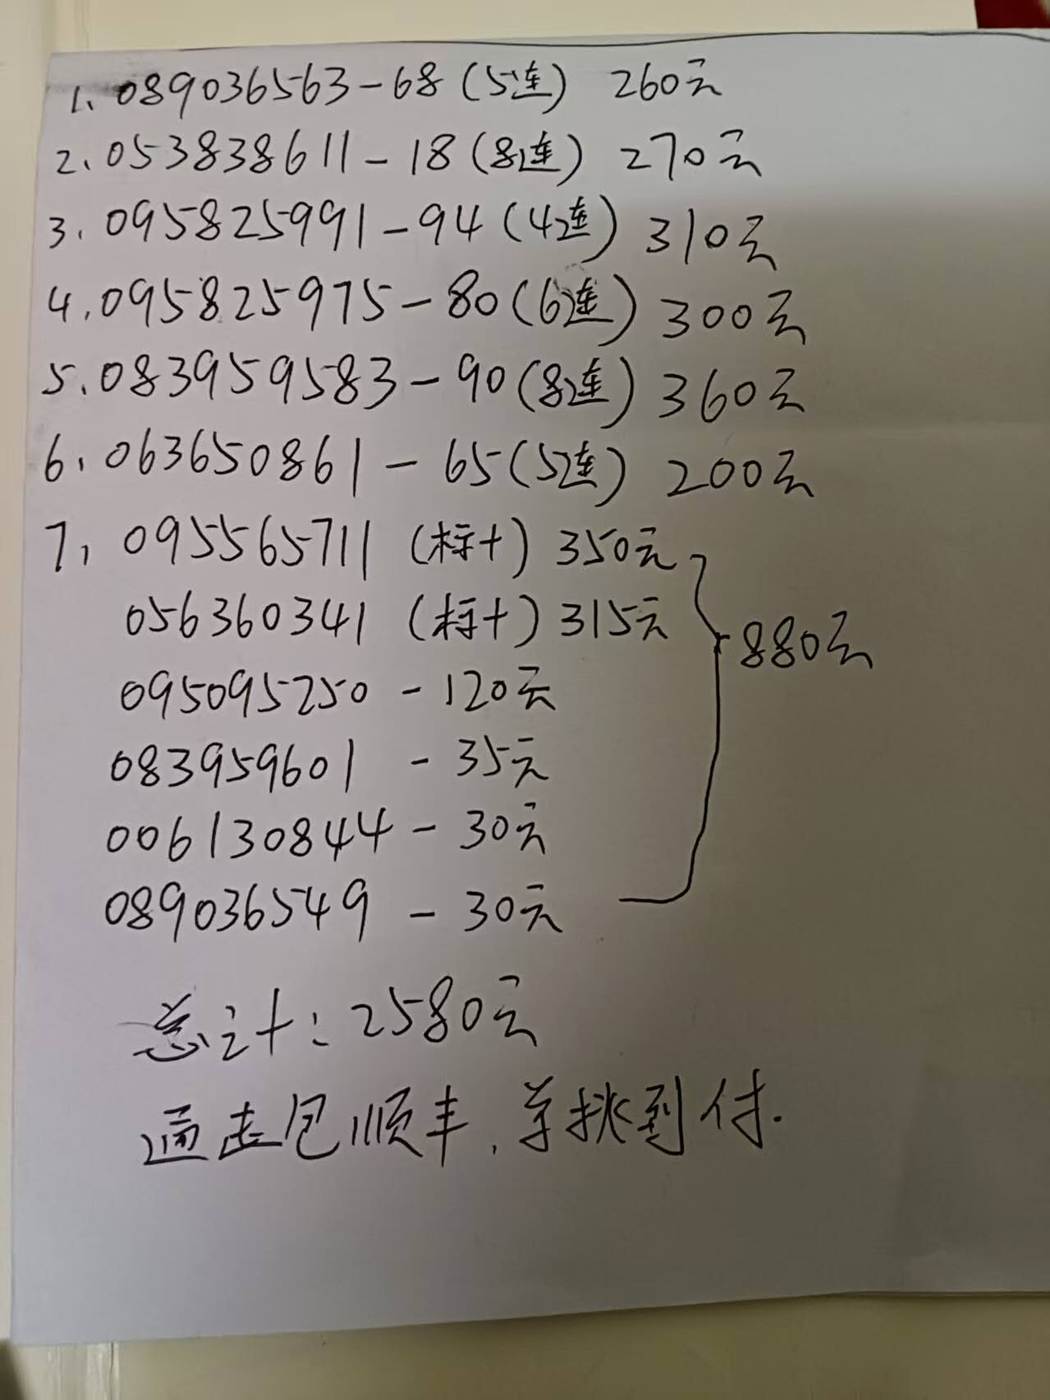 1、089036563-68(5连) 260元
2、053838611-18(8连) 270元
3、095825991-94(4连) 310元
4、095825975-80(6连) 300元
5、083959583-90(8连) 360元
6、063650861-65(5连) 200元
7、095565711(标十) 350元
056360341(标十) 315元
880元
095095250-120元
083959601-35元
006130844-30元
089036549-30元
总计:2580元
通走包顺丰,单挑到付.